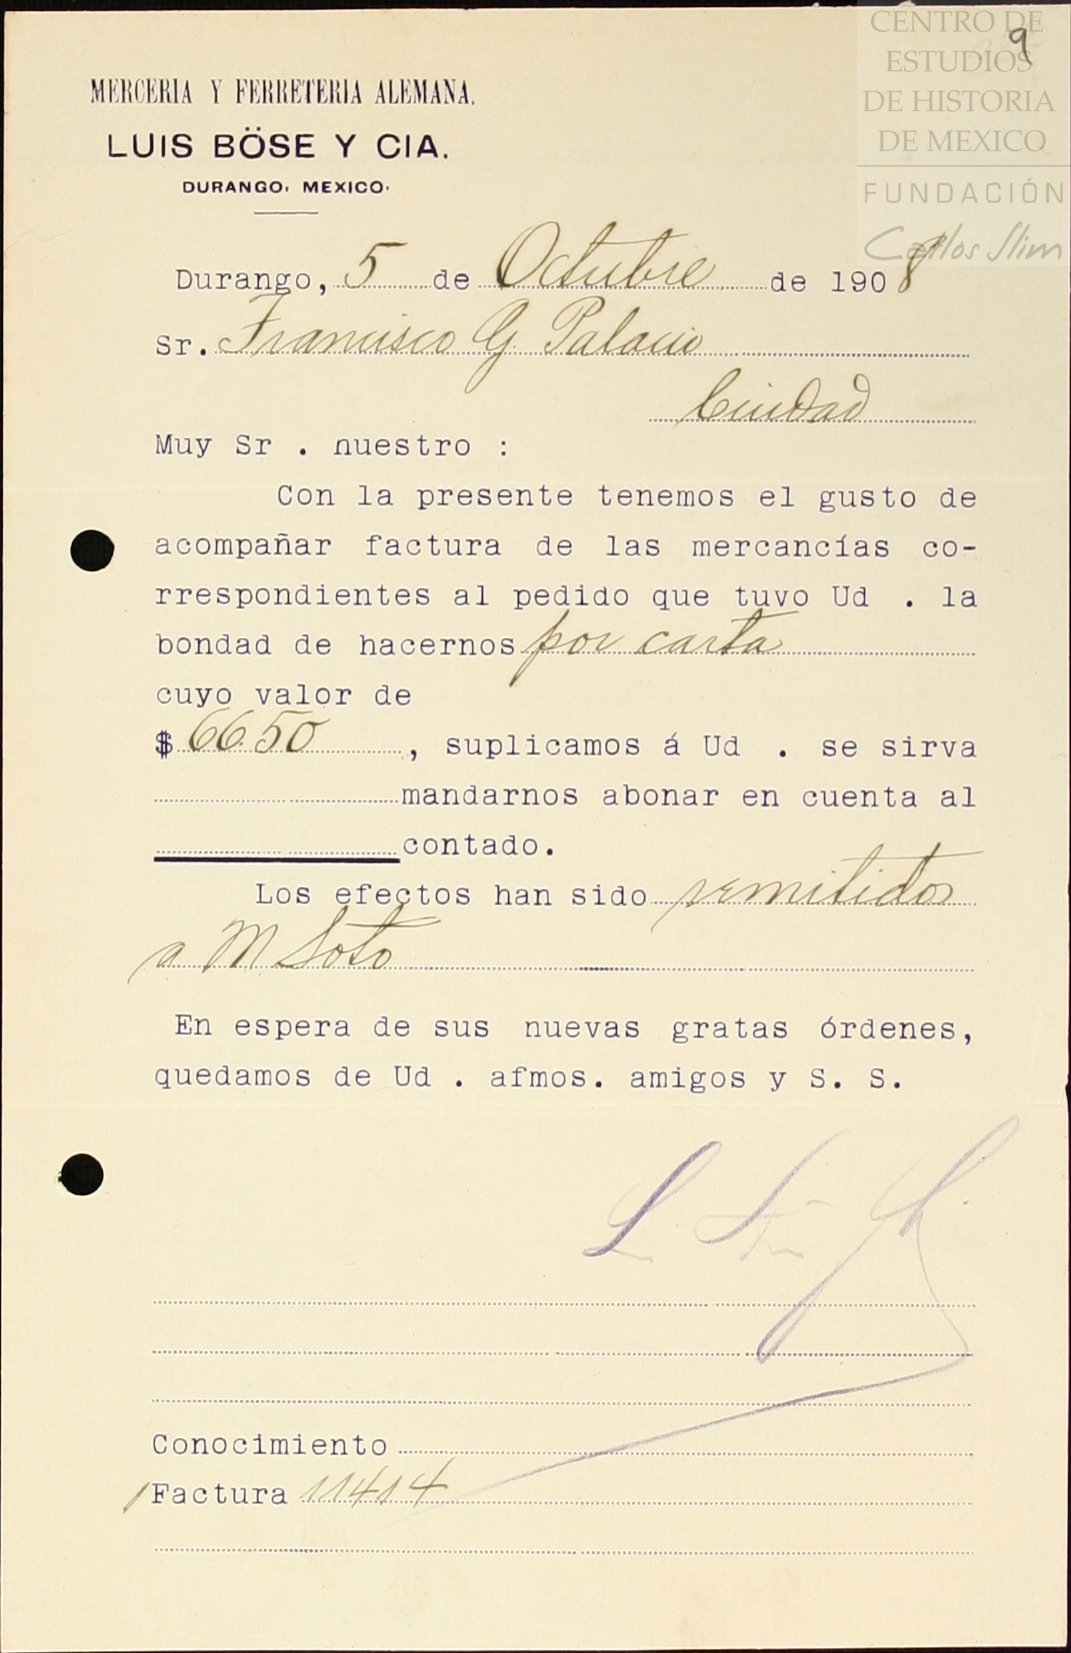 CENTRO DE
ESTUDIOS
DE HISTORIA
DE MEXICO
FUNDACIÓN
Carlos Slim
9
MERCERIA Y FERRETERIA ALEMANA.
LUIS BÖSE Y CIA.
DURANGO, MEXICO.
Durango, 5 de Octubre de 1908
Sr. Francisco G. Palacio
Ciudad
Muy Sr . nuestro :
Con la presente tenemos el gusto de
acompañar factura de las mercancías co-
rrespondientes al pedido que tuvo Ud . la
bondad de hacernos por carta
cuyo valor de
$ 66.50 , suplicamos á Ud . se sirva
mandarnos abonar en cuenta al
contado.
Los efectos han sido remitidos
a M Soto
En espera de sus nuevas gratas órdenes,
quedamos de Ud . afmos. amigos y S. S.
Conocimiento
1 Factura 11414